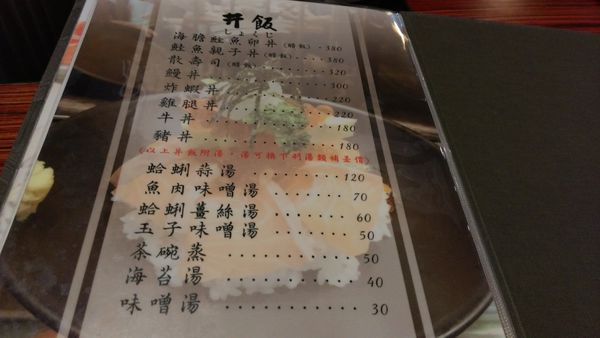 丼飯
しょくじ
海膽鮭魚卵丼(醋飯)‧380
鮭魚親子丼(醋飯)‧‧‧‧380
散壽司(醋飯)‧‧‧‧‧‧‧320
鰻丼‧‧‧‧‧‧‧‧‧‧‧300
炸蝦丼‧‧‧‧‧‧‧‧‧220
雞腿丼‧‧‧‧‧‧‧‧‧220
牛丼‧‧‧‧‧‧‧‧‧‧‧180
豬丼‧‧‧‧‧‧‧‧‧‧‧180
(以上丼飯附湯,湯可換下列湯類補差價)
蛤蜊蒜湯‧‧‧‧‧‧‧‧120
魚肉味噌湯‧‧‧‧‧‧70
蛤蜊薑絲湯‧‧‧‧‧‧60
玉子味噌湯‧‧‧‧‧‧50
茶碗蒸‧‧‧‧‧‧‧‧‧‧50
海苔湯‧‧‧‧‧‧‧‧‧‧40
味噌湯‧‧‧‧‧‧‧‧‧‧30